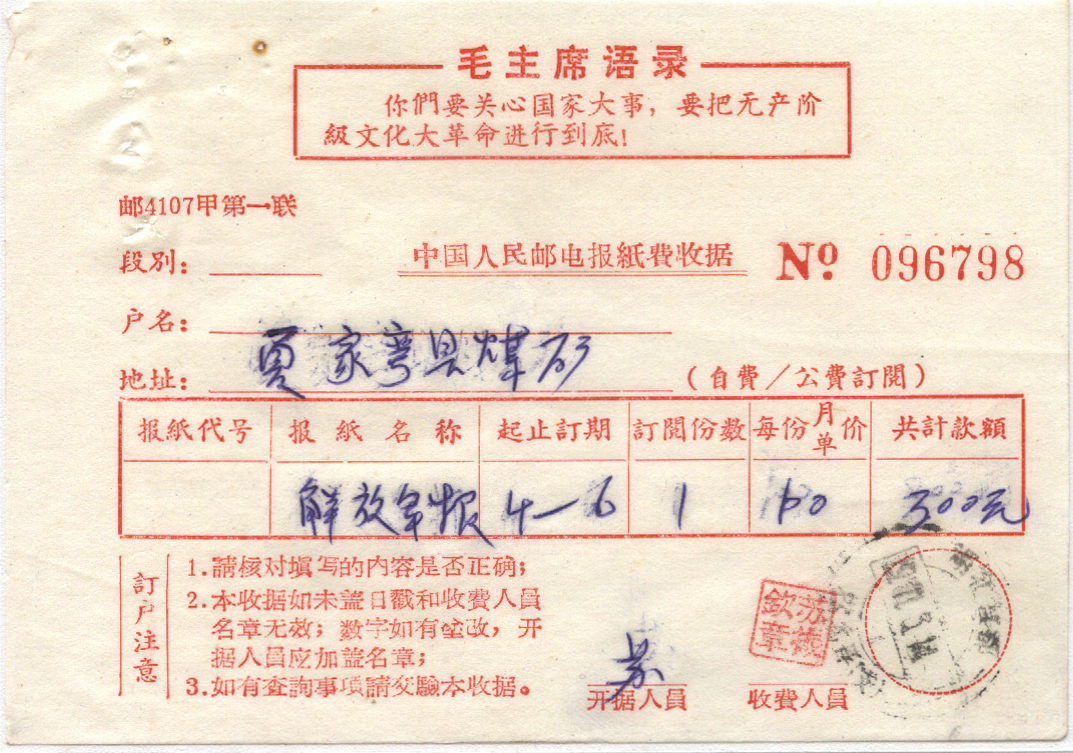 毛主席语录
你們要关心国家大事，要把无产阶
級文化大革命进行到底！
邮4107甲第一联
段别：
中国人民邮电报紙費收据 Nº 096798
户名：
地址： 贾家弯县煤矿 （自費／公費訂閱）
报紙代号 报紙名称 起止訂期 訂閱份数 每份月单价 共計款額
解放军报 4—6 1 1.00 3.00元
訂户注意
1.請核对填写的内容是否正确；
2.本收据如未盖日戳和收費人員
名章无效；数字如有塗改，开
据人員应加盖名章；
3.如有查詢事項請交驗本收据。
苏
开据人員 收費人員